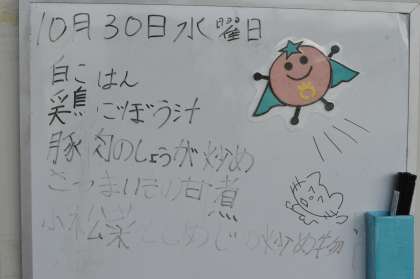 10月30日水曜日
白ごはん
鶏ごぼう汁
豚肉のしょうが炒め
さつまいもの甘煮
小松菜としめじの炒め物